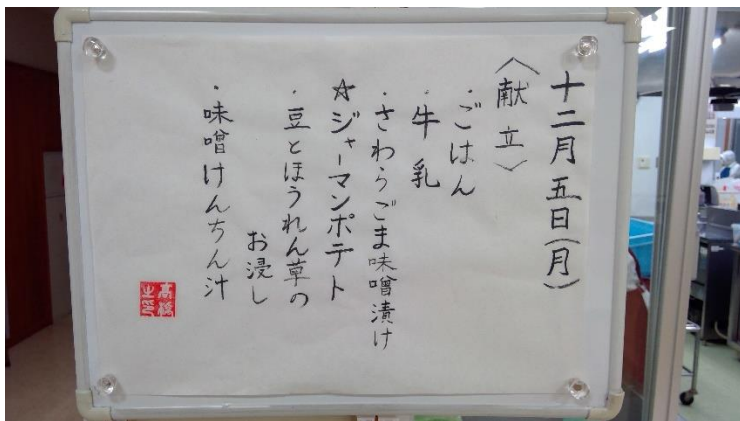 十二月五日(月)
〈献立〉
・ごはん
・牛乳
・さわらごま味噌漬け
☆ジャーマンポテト
・豆とほうれん草の
お浸し
・味噌けんちん汁